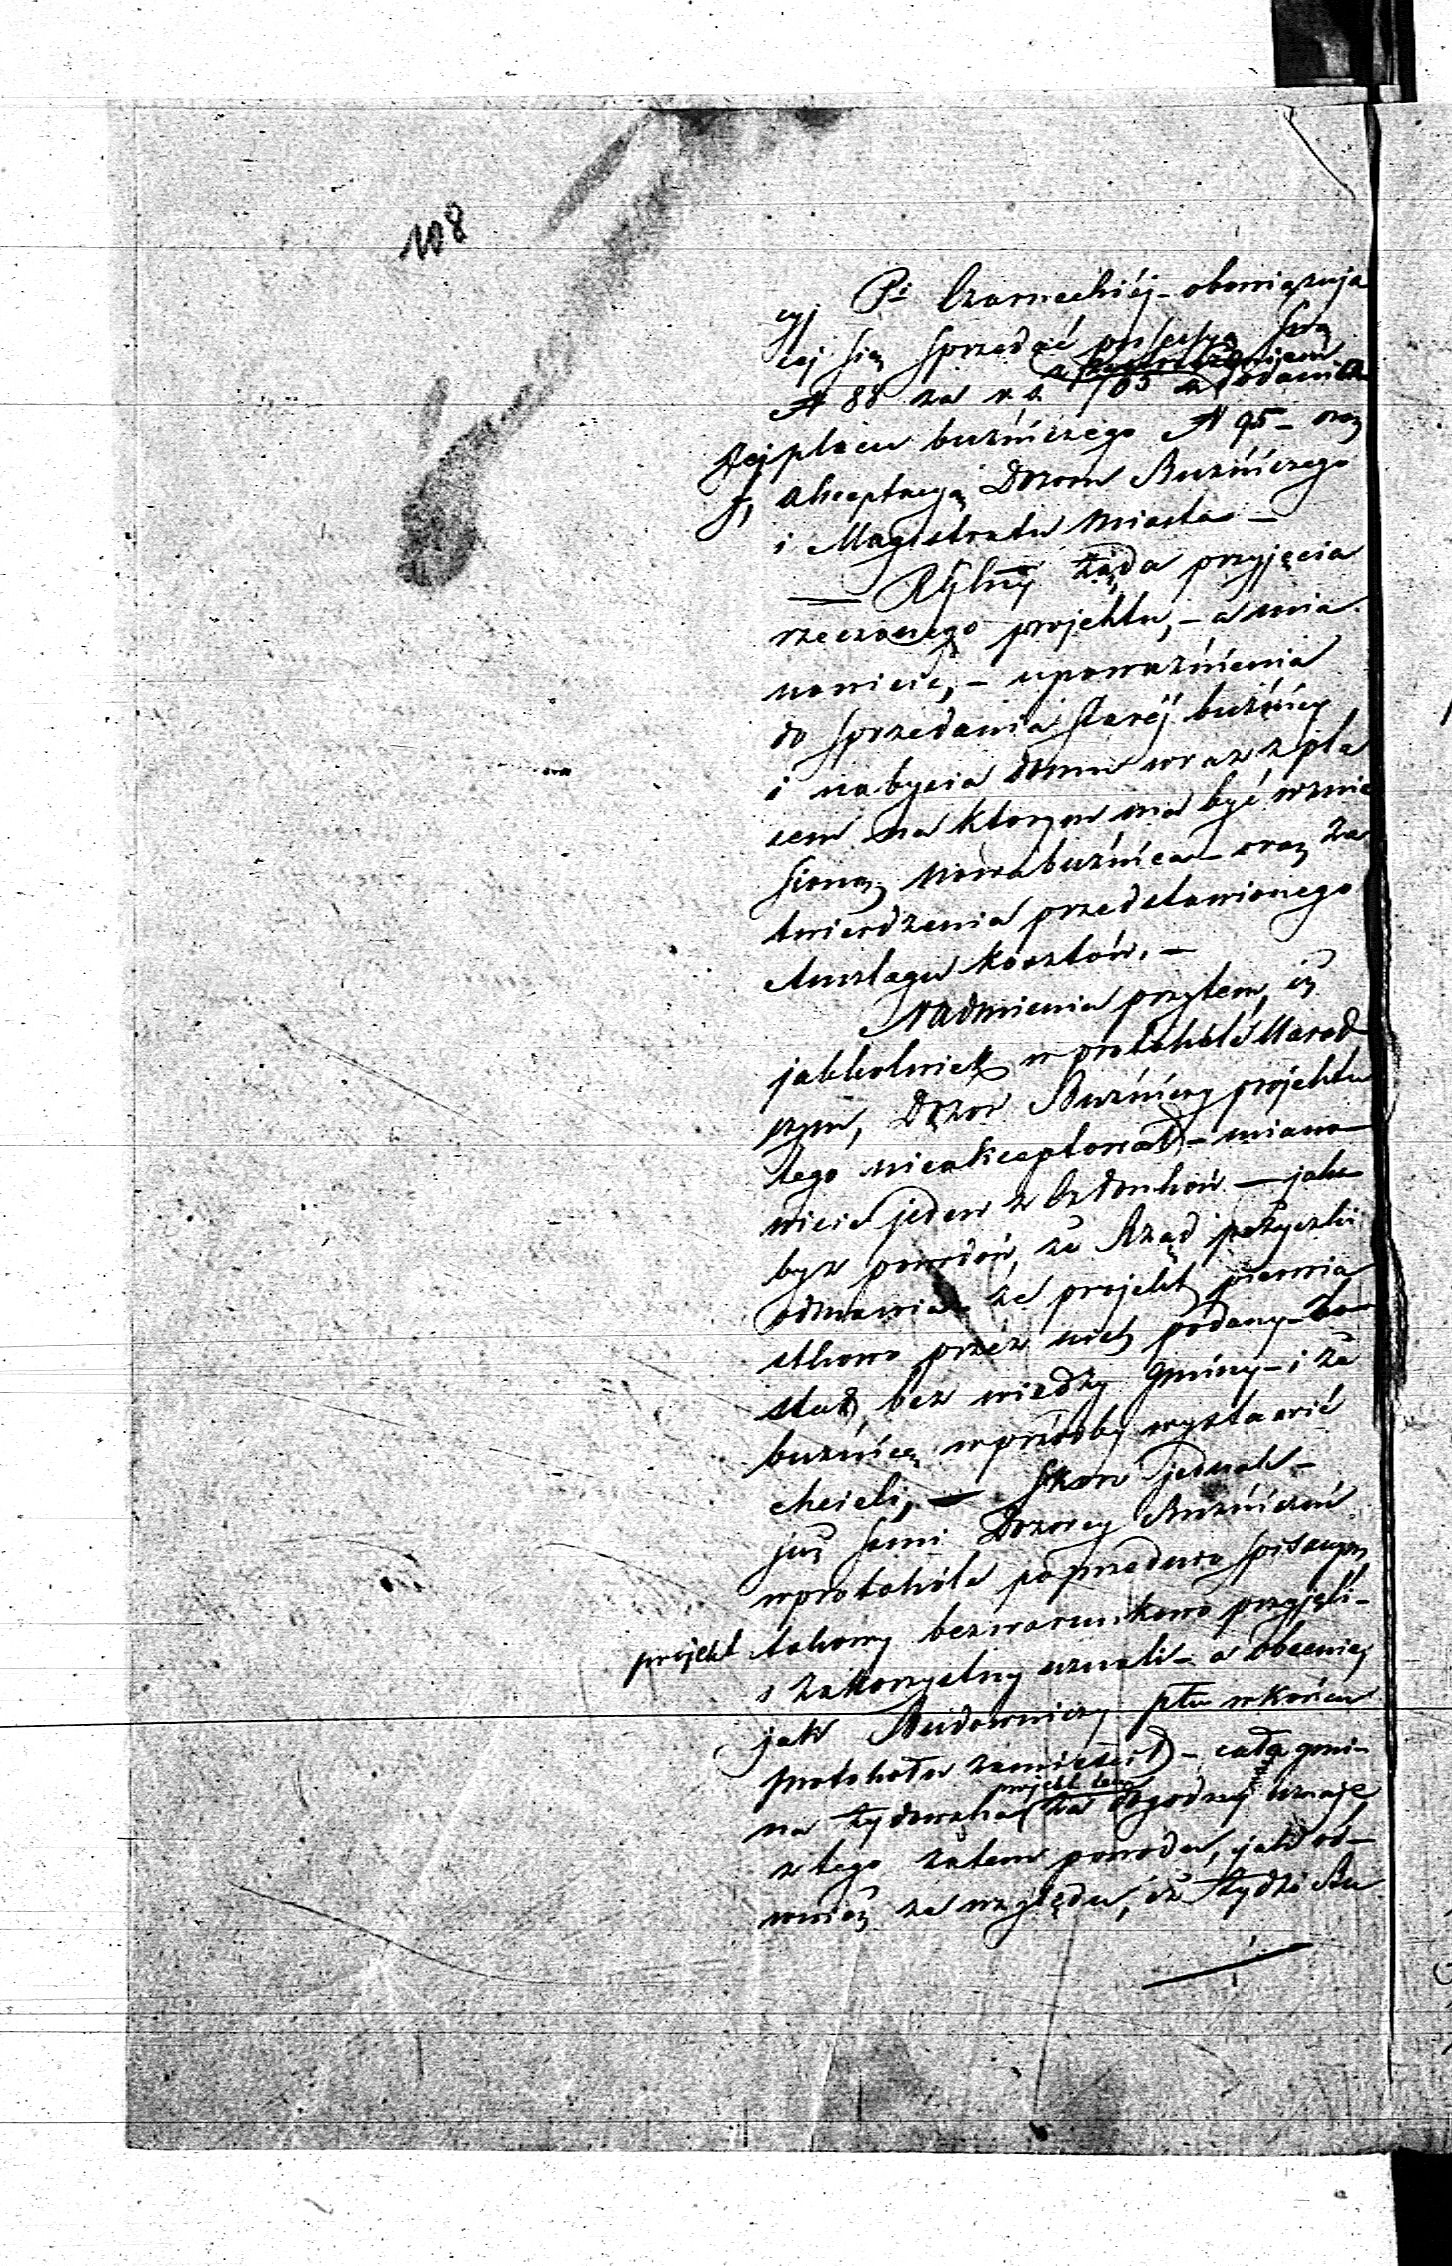 108
Pi Czarneckiéj - obowiązują
cej się sprzedać possessyą swą
N 88 za r. s. 765 z dodaniem
jej placu buźniczego N 95 - oraz
f, akceptacyą Dozoru Buźniczego
i Magistratu Miasta -
żąda przyjęcia
rzeczonego projektu, - a mia
nowicie, - upoważnienia
do sprzedania staréj buźnicy
i nabycia domu wraz z pla
cem na ktorym ma być wznie
sioną nowa buźnica - oraz za
twierdzenia przedstawionego
Anszlagu kosztów. -
Nadmienia przytem, iż
jakkolwiek w protokóle
szym, Dozor Buźniczy projektu
tego nieakceptował - miano
wicie jeden z Członków - jako
by z powodów, że Rząd pożyczki
odmawia - że projekt pierwia
stkowo przez nich podany zo
stał bez wiedzy Gminy - i że
buźnicę wystawić
chcieli, - Skoro jednak -
już sami Dozorcy Buźniczni
w protokóle poprzednio spisanym
projekt takowy bezwarunkowo przyjęli -
i za korzystny uznali - a obecnie
jak Budowniczy Ptu w końcu
protokołu zamieścił - cała gmi-
projekt ten
na żydowska za dogodny uznaje
z tego zatem powodu, jak ró-
wnież ze względu, iż żydzi Bu